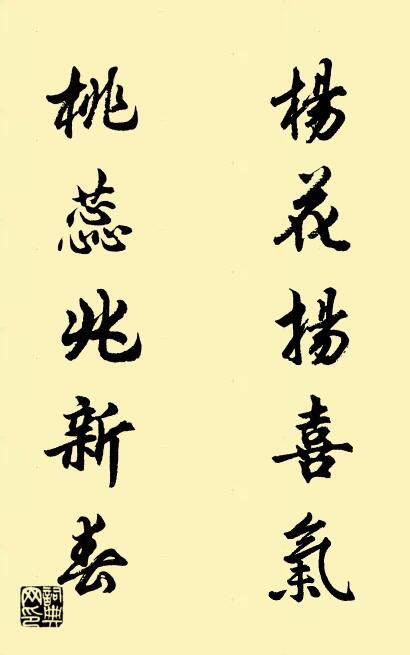 楊花揚喜氣
桃蕊兆新春
詞典網印